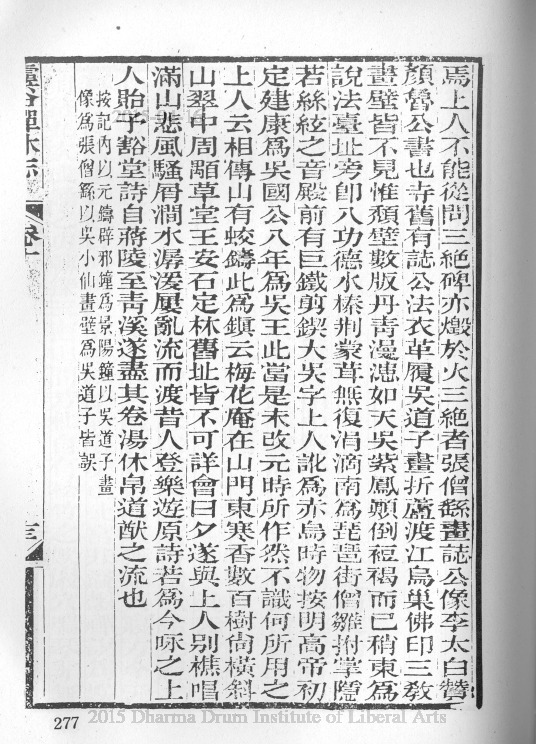 焉上人不能從問三絶碑亦燬於火三絶者張僧繇畫誌公像李太白贊
顏魯公書也寺舊有誌公法衣革履吳道子畫折蘆渡江鳥巢佛印三敎
畫壁皆不見惟頹壁數版丹靑漫漶如天吳紫鳳顚倒裋褐而已稍東爲
說法臺址旁卽八功德水榛荆蒙茸無復涓滴南爲琵琶街僧雛拊掌隱
若絲絃之音殿前有巨鐵剪鍥大吳字上人訛爲赤烏時物按明高帝初
定建康爲吳國公八年爲吳王此當是未改元時所作然不識何所用之
上人云相傳山有蛟鑄此爲鎭云梅花庵在山門東寒香數百樹尙橫斜
山翠中周顒草堂王安石定林舊址皆不可詳會日夕遂與上人別樵唱
滿山悲風騷屑澗水潺湲屢亂流而渡昔人登樂遊原詩若爲今咏之上
人貽予豁堂詩自蔣陵至靑溪遂盡其卷湯休帛道猷之流也
按記內以元鑄辟邪鐘爲景陽鐘以吳道子畫
像爲張僧繇以吳小仙畫壁爲吳道子皆誤
靈谷禪林志
卷十
277
2015 Dharma Drum Institute of Liberal Arts